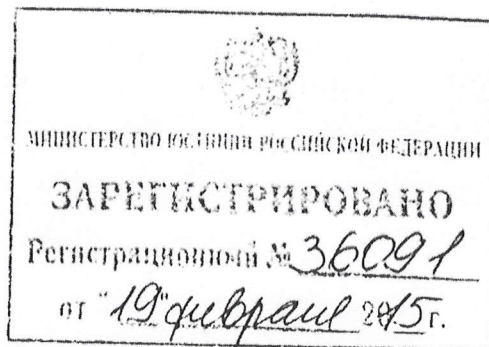 МИНИСТЕРСТВО ЮСТИЦИИ РОССИЙСКОЙ ФЕДЕРАЦИИ
ЗАРЕГИСТРИРОВАНО
Регистрационный № 36091
от "19" февраля 2015 г.